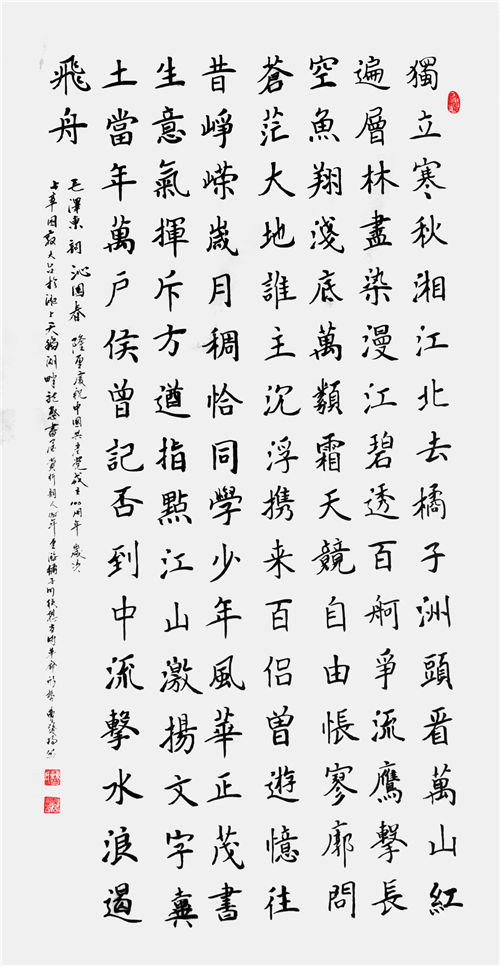 獨立寒秋湘江北去橘子洲頭看萬山紅
遍層林盡染漫江碧透百舸爭流鷹擊長
空魚翔淺底萬類霜天競自由悵寥廓問
蒼茫大地誰主沉浮携来百侣曾遊憶往
昔崢嶸歲月稠恰同學少年風華正茂書
生意氣揮斥方遒指點江山激揚文字糞
土當年萬户侯曾記否到中流擊水浪遏
飛舟
毛澤東詞沁園春 隆重慶祝中國共產黨成立100周年 歲次